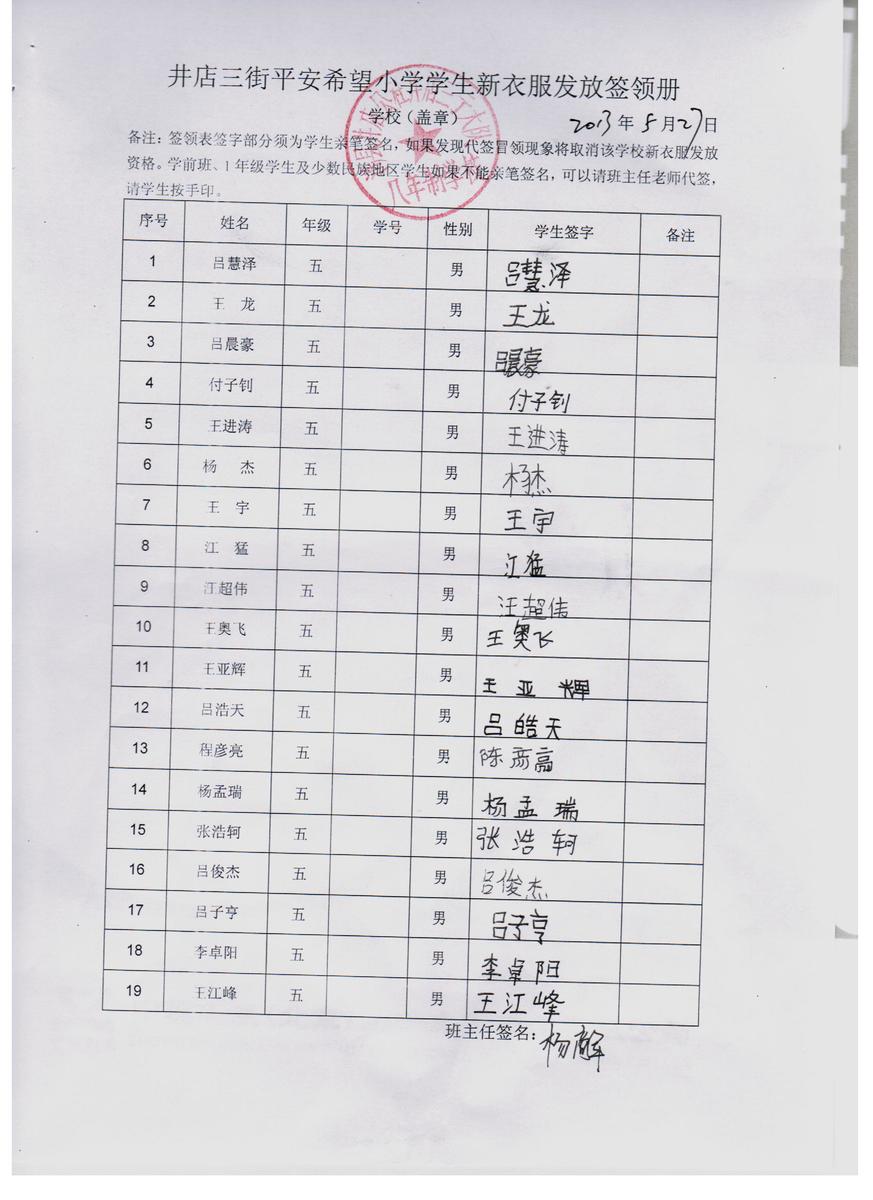 井店三街平安希望小学学生新衣服发放签领册
学校（盖章） 2013 年 5 月 27 日
备注：签领表签字部分须为学生亲笔签名，如果发现代签冒领现象将取消该学校新衣服发放
资格。学前班、1 年级学生及少数民族地区学生如果不能亲笔签名，可以请班主任老师代签，
请学生按手印。
序号 姓名 年级 学号 性别 学生签字 备注
1 吕慧泽 五 男 吕慧泽
2 王 龙 五 男 王龙
3 吕晨豪 五 男 吕晨豪
4 付子钊 五 男 付子钊
5 王进涛 五 男 王进涛
6 杨 杰 五 男 杨杰
7 王 宇 五 男 王宇
8 江 猛 五 男 江猛
9 汪超伟 五 男 汪超伟
10 王奥飞 五 男 王奥飞
11 王亚辉 五 男 王亚辉
12 吕浩天 五 男 吕皓天
13 程彦亮 五 男 陈彦高
14 杨孟瑞 五 男 杨孟瑞
15 张浩轲 五 男 张浩轲
16 吕俊杰 五 男 吕俊杰
17 吕子亨 五 男 吕子亨
18 李卓阳 五 男 李卓阳
19 王江峰 五 男 王江峰
班主任签名：杨